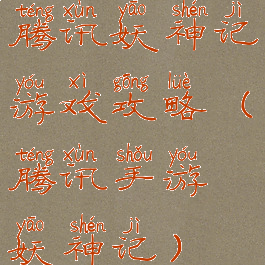 téng xùn yāo shén jì
腾讯妖神记
yóu xì gōng lüè
游戏攻略（
téng xùn shǒu yóu
腾讯手游
yāo shén jì
妖神记）